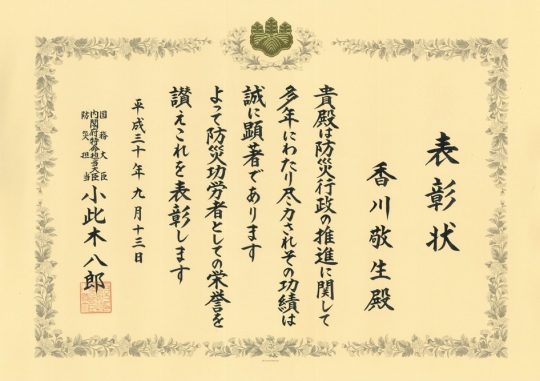 表彰状
香川敬生殿
貴殿は防災行政の推進に関して
多年にわたり尽力されその功績は
誠に顕著であります
よって防災功労者としての栄誉を
讃えこれを表彰します
平成三十年九月十三日
国務大臣
内閣府特命担当大臣
防災担当
小此木八郎